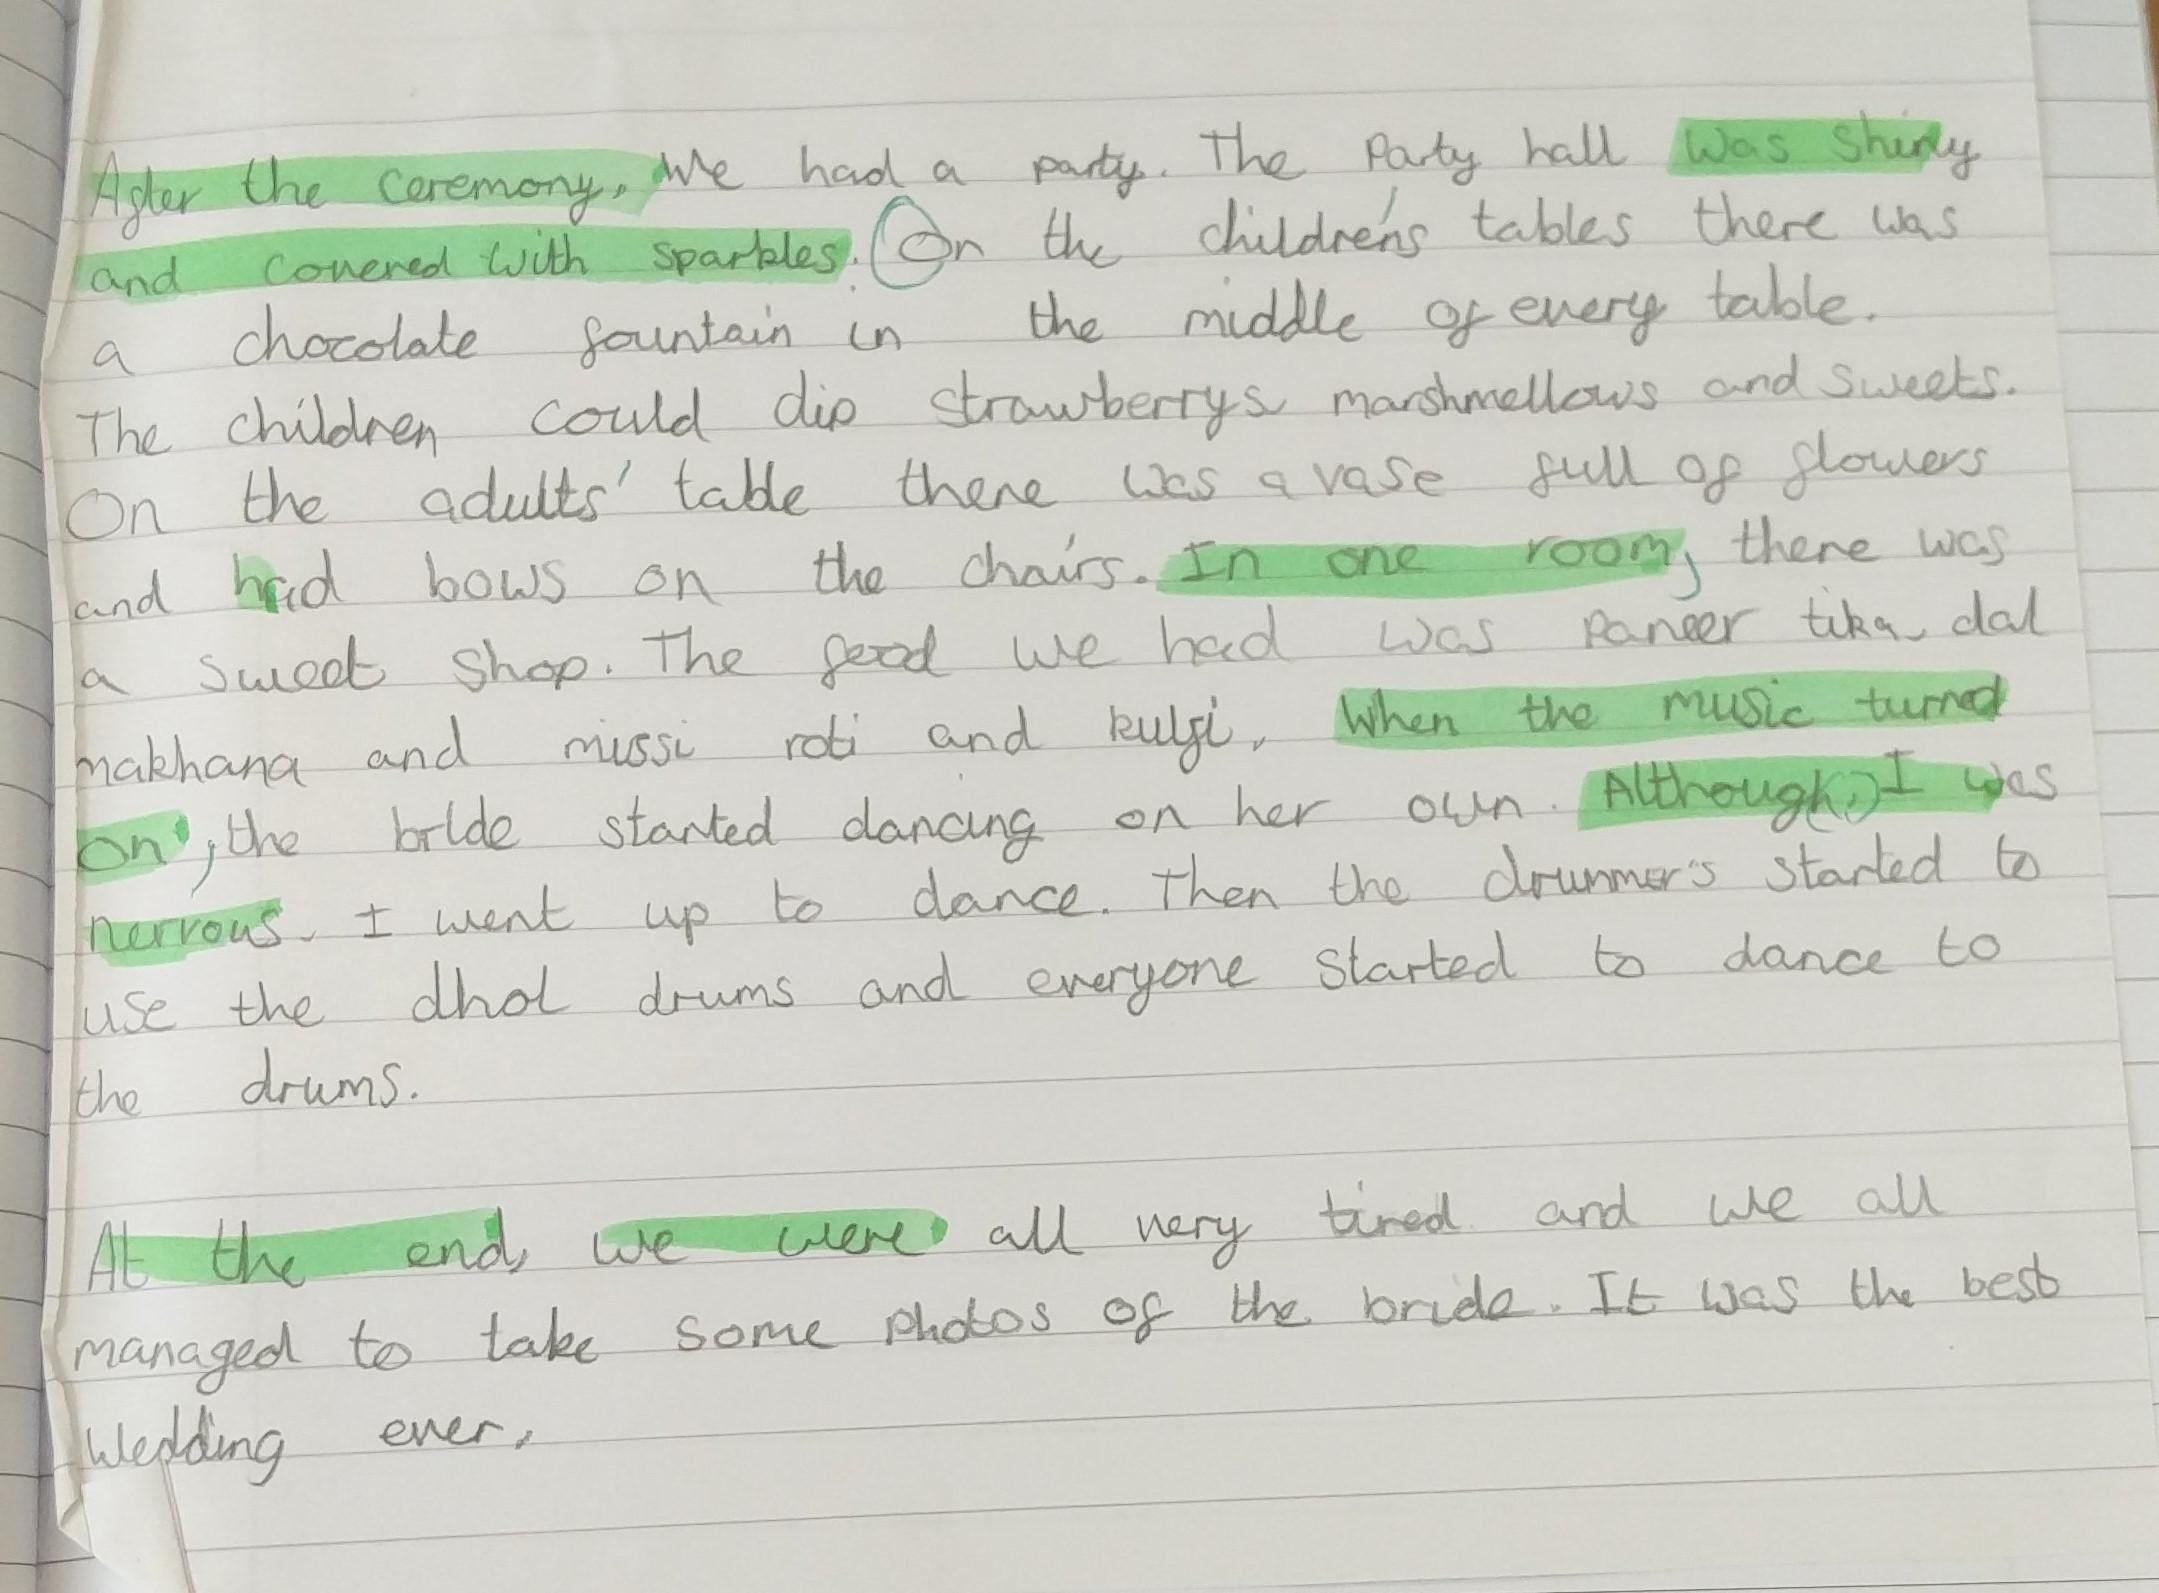 After the ceremony, We had a party. The Party hall was shiny
and covered with sparkles. On the children's tables there was
a chocolate fountain in the middle of every table.
The children could dip strawberrys marshmellows and sweets.
On the adults' table there was a vase full of flowers
and had bows on the chairs. In one room, there was
a sweet shop. The food we had was paneer tika, dal
makhana and missi roti and kulfi. When the music turned
on, the bride started dancing on her own. Although(,) I was
nervous. I went up to dance. Then the drummer's started to
use the dhol drums and everyone started to dance to
the drums.
At the end, we were all very tired and we all
managed to take some photos of the bride. It was the best
Wedding ever.